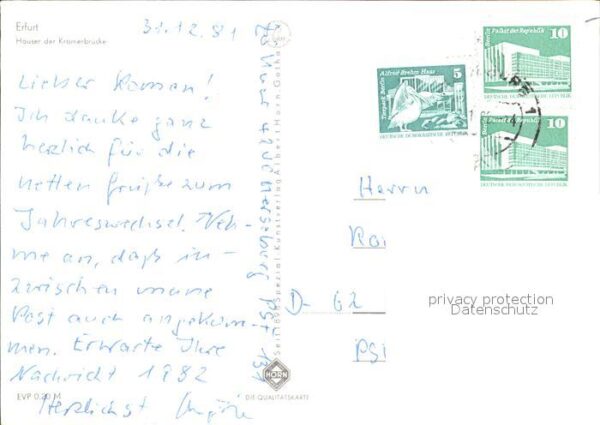 Erfurt
Häuser der Krämerbrücke
31.12.81
Lieber Roman!
Ich danke ganz
herzlich für die
netten Grüße zum
Jahreswechsel. Neh-
me an, daß in-
zwischen meine
Post auch angekom-
men. Erwarte Ihre
Nachricht 1982
Herzlichst
EVP 0.20 M
42 Merseburg PSF 131
Seit 1894 Spezial Kunstverlag Albert Horn Gotha
HORN
DIE QUALITÄTSKARTE
Tierpark Berlin
Alfred-Brehm-Haus
5
DEUTSCHE DEMOKRATISCHE REPUBLIK
Berlin Palast der Republik
10
DEUTSCHE DEMOKRATISCHE REPUBLIK
Berlin Palast der Republik
10
DEUTSCHE DEMOKRATISCHE REPUBLIK
Herrn
D-62
privacy protection
Datenschutz